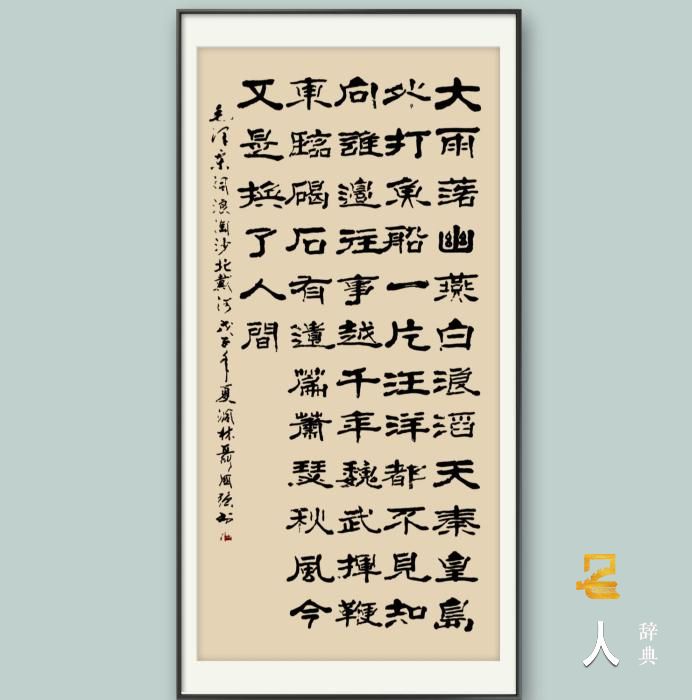 大雨落幽燕白浪滔天秦皇島
外打魚船一片汪洋都不見知
向誰邊往事越千年魏武揮鞭
東臨碣石有遺篇蕭瑟秋風今
又是換了人間
毛澤東詞浪淘沙北戴河戊子年夏林聶國強书
名人
辞典